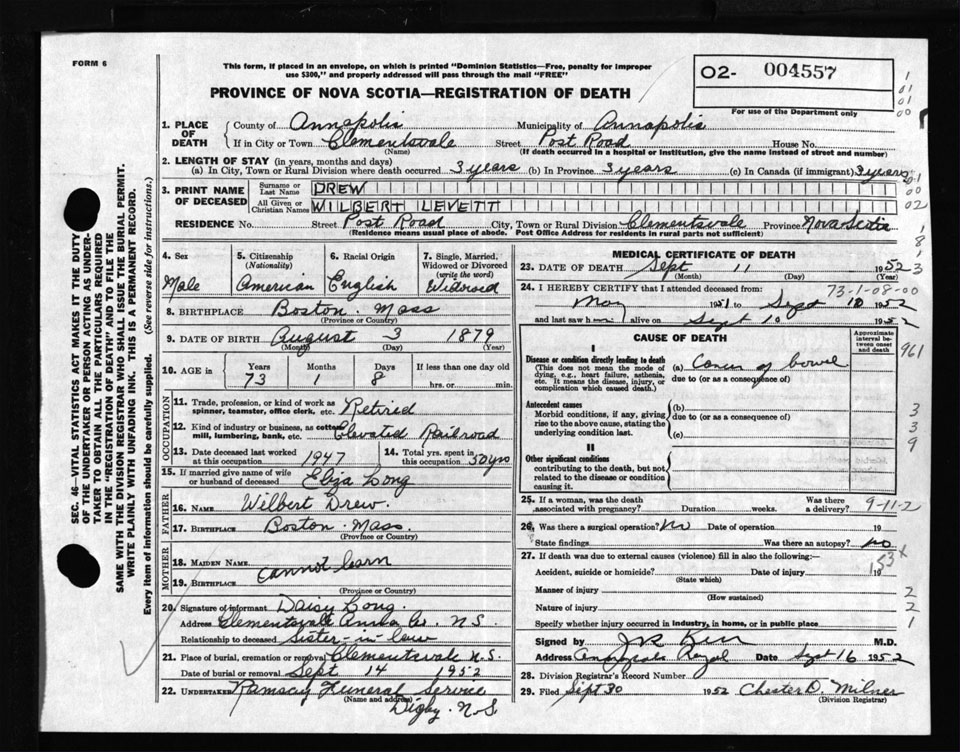 FORM 6
This form, if placed in an envelope, on which is printed "Dominion Statistics—Free, penalty for improper
use $300," and properly addressed will pass through the mail "FREE"
PROVINCE OF NOVA SCOTIA—REGISTRATION OF DEATH
02- 004557
For use of the Department only
1. PLACE OF DEATH
County of Annapolis Municipality of Annapolis
If in City or Town Clementsvale Street Post Road House No.
(Name) (If death occurred in a hospital or institution, give the name instead of street and number)
2. LENGTH OF STAY (in years, months and days)
(a) In City, Town or Rural Division where death occurred 3 years (b) In Province 3 years (c) In Canada (if immigrant) 3 years
3. PRINT NAME OF DECEASED
Surname or Last Name DREW
All Given or Christian Names WILBERT LEVETT
RESIDENCE No. Street Post Road City, Town or Rural Division Clementsvale Province Nova Scotia
(Residence means usual place of abode. Post Office Address for residents in rural parts not sufficient)
4. Sex
Male
5. Citizenship
(Nationality)
American
6. Racial Origin
English
7. Single, Married,
Widowed or Divorced
(write the word)
Widowed
8. BIRTHPLACE Boston. Mass
(Province or Country)
9. DATE OF BIRTH August 3 1879
(Month) (Day) (Year)
10. AGE in Years Months Days If less than one day old
73 1 8 hrs. or min.
OCCUPATION
11. Trade, profession, or kind of work as
spinner, teamster, office clerk, etc. Retired
12. Kind of industry or business, as cotton
mill, lumbering, bank, etc. Elevated Railroad
13. Date deceased last worked
at this occupation 1947
14. Total yrs. spent in
this occupation 50 yrs
15. If married give name of wife
or husband of deceased Eliza Long
FATHER
16. Name Wilbert Drew.
17. Birthplace Boston. Mass.
(Province or Country)
MOTHER
18. Maiden Name
cannot learn
19. Birthplace
(Province or Country)
20. Signature of informant Daisy Long.
Address Clementsvale Anna Co. N.S.
Relationship to deceased Sister-in law
21. Place of burial, cremation or removal Clementsvale N.S.
Date of burial or removal Sept 14 1952
22. UNDERTAKER Ramsay Funeral Service
(Name and address) Digby. N.S.
MEDICAL CERTIFICATE OF DEATH
23. DATE OF DEATH Sept 11 1952
(Month) (Day) (Year)
73-1-08-00
24. I HEREBY CERTIFY that I attended deceased from:
May 1951 to Sept 10 1952
and last saw him alive on Sept 10 1952
CAUSE OF DEATH
Approximate
interval between
onset
and death
I
Disease or condition directly leading to death
(This does not mean the mode of
dying, e.g., heart failure, asthenia,
etc. It means the disease, injury, or
complication which caused death.)
(a) of bowel
due to (or as a consequence of)
Antecedent causes
Morbid conditions, if any, giving
rise to the above cause, stating the
underlying condition last.
(b)
due to (or as a consequence of)
(c)
II
Other significant conditions
contributing to the death, but not
related to the disease or condition
causing it.
25. If a woman, was the death
associated with pregnancy? Duration weeks. Was there
a delivery? 9-11-2
26. Was there a surgical operation? No Date of operation 19
State findings Was there an autopsy? no
27. If death was due to external causes (violence) fill in also the following:—
Accident, suicide or homicide? Date of injury 19
(State which)
Manner of injury
(How sustained)
Nature of injury
Specify whether injury occurred in industry, in home, or in public place
Signed by M.D.
Address Annapolis Royal Date Sept 16 1952
28. Division Registrar's Record Number
29. Filed Sept 30 1952 Chester D. Milner
(Division Registrar)
961
3
3
9
2
2
1
SEC. 46—VITAL STATISTICS ACT MAKES IT THE DUTY
OF THE UNDERTAKER OR PERSON ACTING AS UNDER-
TAKER TO OBTAIN ALL THE PARTICULARS REQUIRED
IN THE "REGISTRATION OF DEATH" AND TO FILE THE
SAME WITH THE DIVISION REGISTRAR WHO SHALL ISSUE THE BURIAL PERMIT.
WRITE PLAINLY WITH UNFADING INK. THIS IS A PERMANENT RECORD.
Every item of information should be carefully supplied. (See reverse side for instructions.)